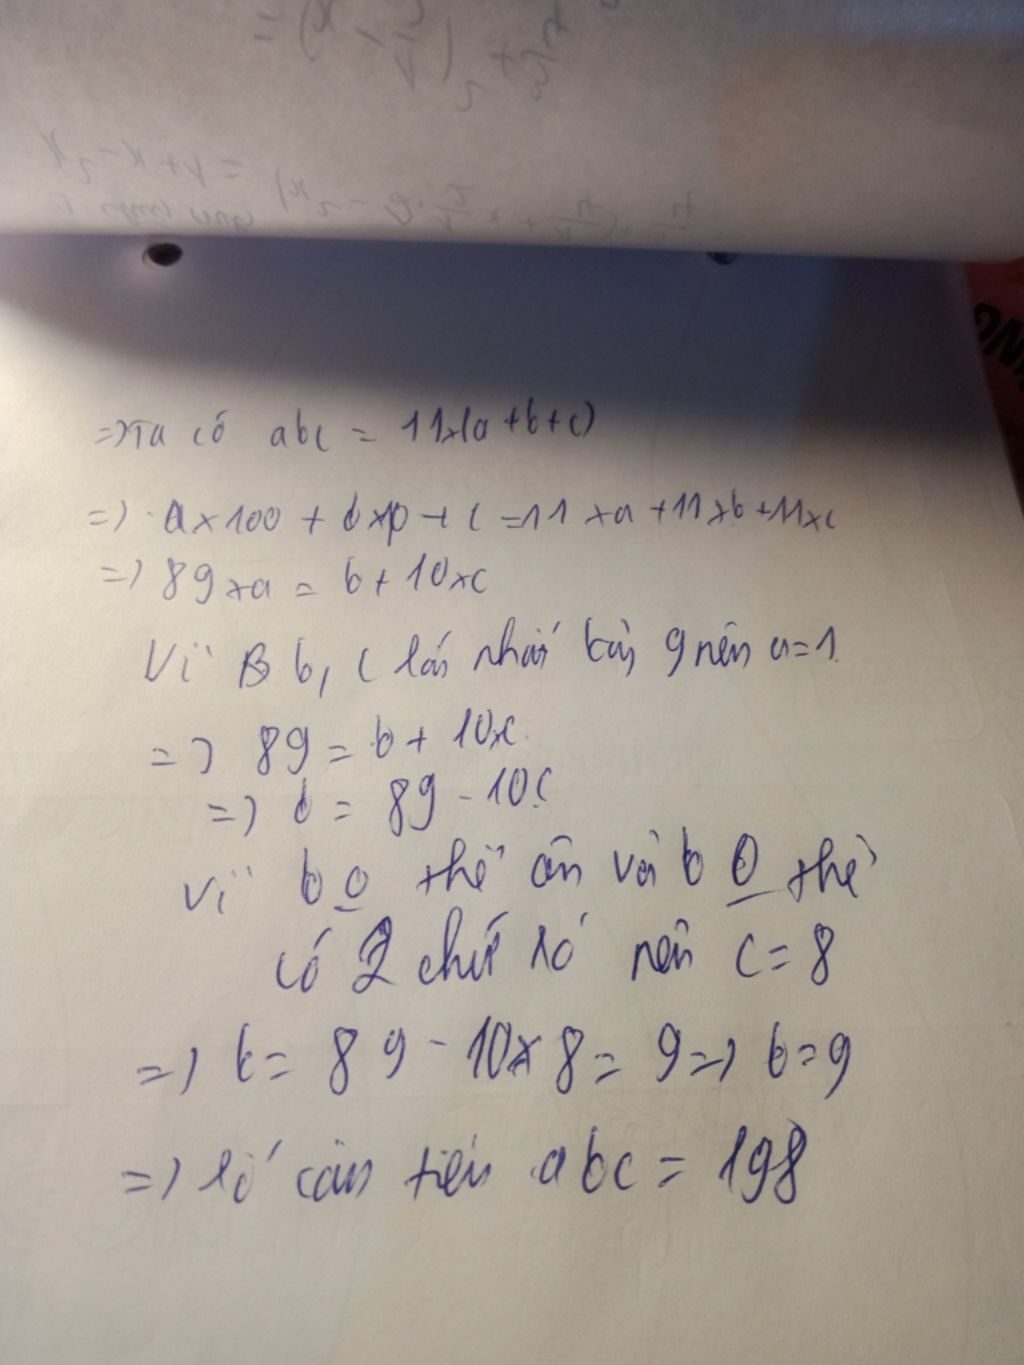 => Ta có abc = 11x(a+b+c)
=> a x 100 + b x 10 + c = 11 x a + 11 x b + 11 x c
=> 89 x a = b + 10 x c
Vì b, c lớn nhất bằng 9 nên a=1
=> 89 = b + 10xc
=> b = 89 - 10c
Vì b o thể âm và b o thể
có 2 chữ số nên c = 8
=> b = 89 - 10x8 = 9 => b = 9
=> số cần tìm abc = 198